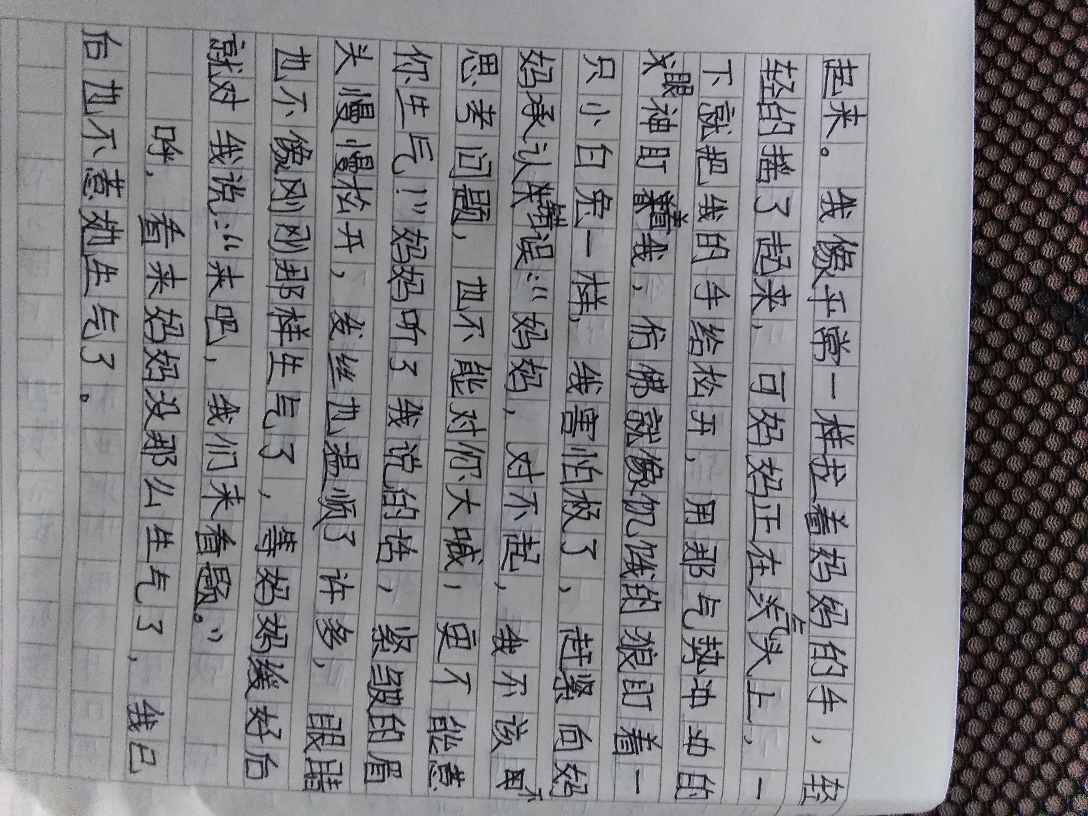 起来。我像平常一样拉着妈妈的手，轻
轻的摇了起来，可妈妈正在气头上，一
下就把我的手给松开，用那气势冲冲的
眼神盯着我，仿佛就像饥饿的狼盯着一
只小白兔一样，我害怕极了，赶紧向妈
妈承认错误：“妈妈，对不起，我不该不
思考问题，也不能对你大喊，更不能惹
你生气！”妈妈听了我说的话，紧皱的眉
头慢慢松开，发丝也温顺了许多，眼睛
也不像刚刚那样生气了，等妈妈缓好后
就对我说：“来吧，我们来看题。”
呼，看来妈妈没那么生气了，我已
后也不惹她生气了。